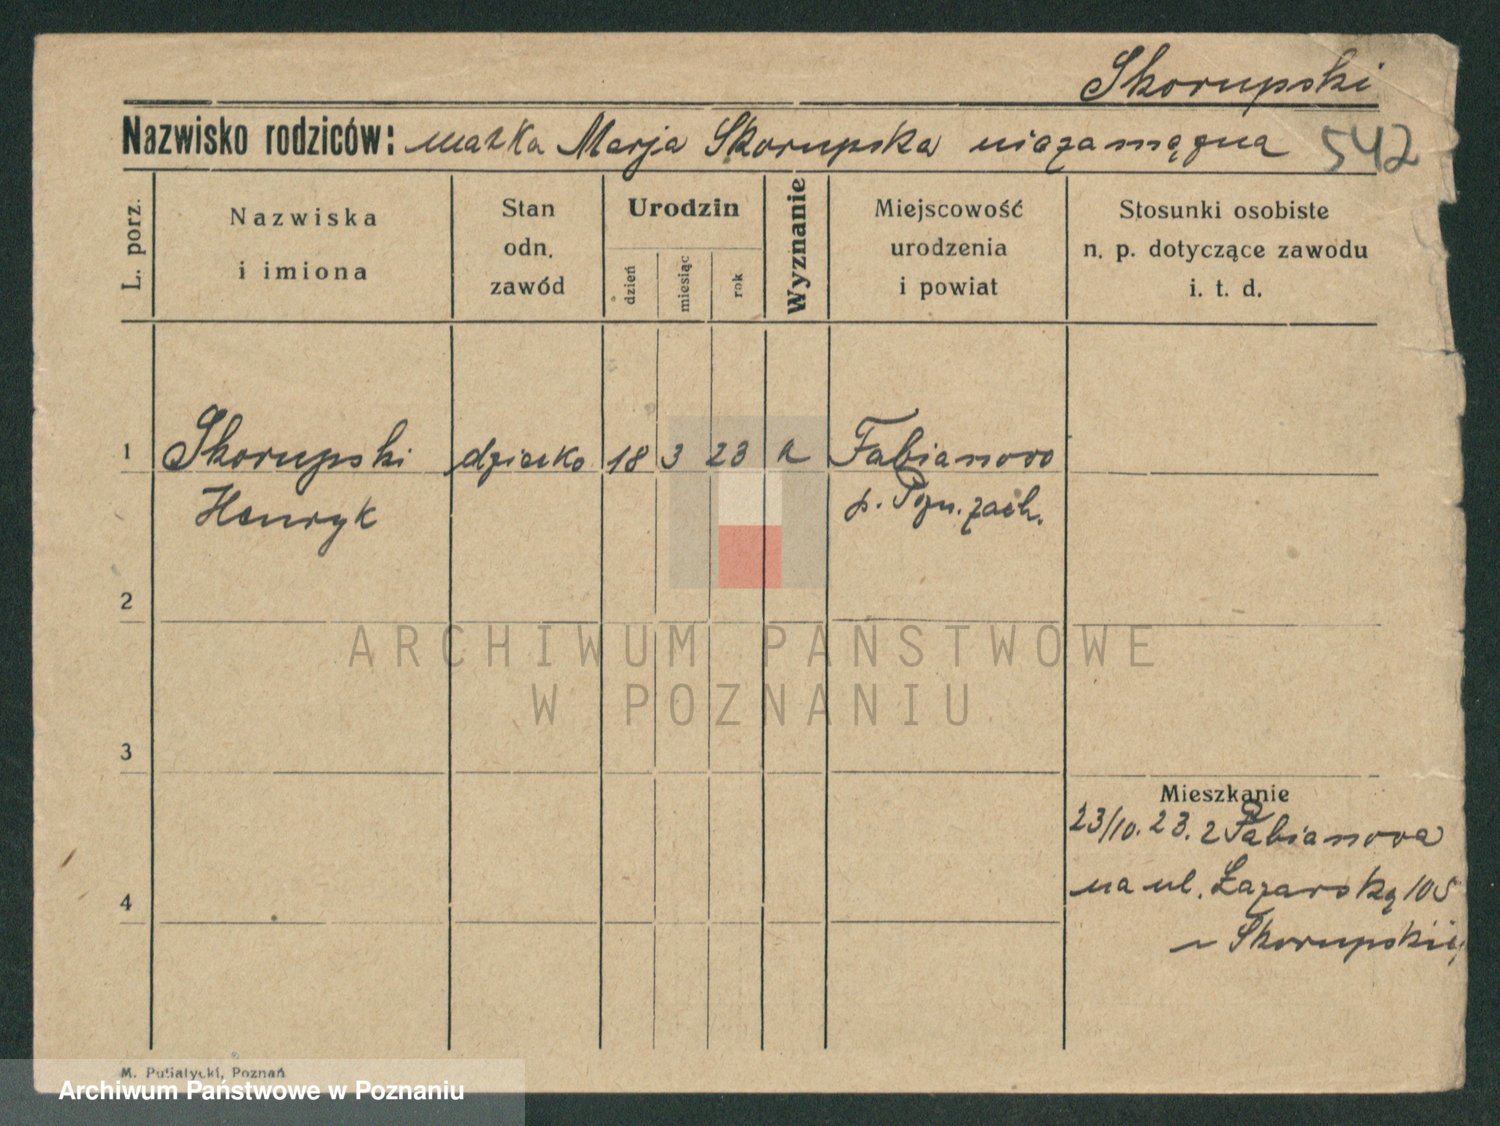 Skorupski
Nazwisko rodziców: matka Marja Skorupska niezamężna 542
L. porz.
Nazwiska
i imiona
Stan
odn.
zawód
Urodzin
dzień
miesiąc
rok
Wyznanie
Miejscowość
urodzenia
i powiat
Stosunki osobiste
n. p. dotyczące zawodu
i. t. d.
1 Skorupski dziecko 18 3 23 k Fabianowo
Henryk p. Pozn. zach.
2
3
Mieszkanie
23/10. 23. z Fabianowa
4 na ul. Łazarską 105
Skorupskiij
M. Putiatycki, Poznań
ARCHIWUM PAŃSTWOWE
W POZNANIU
Archiwum Państwowe w Poznaniu